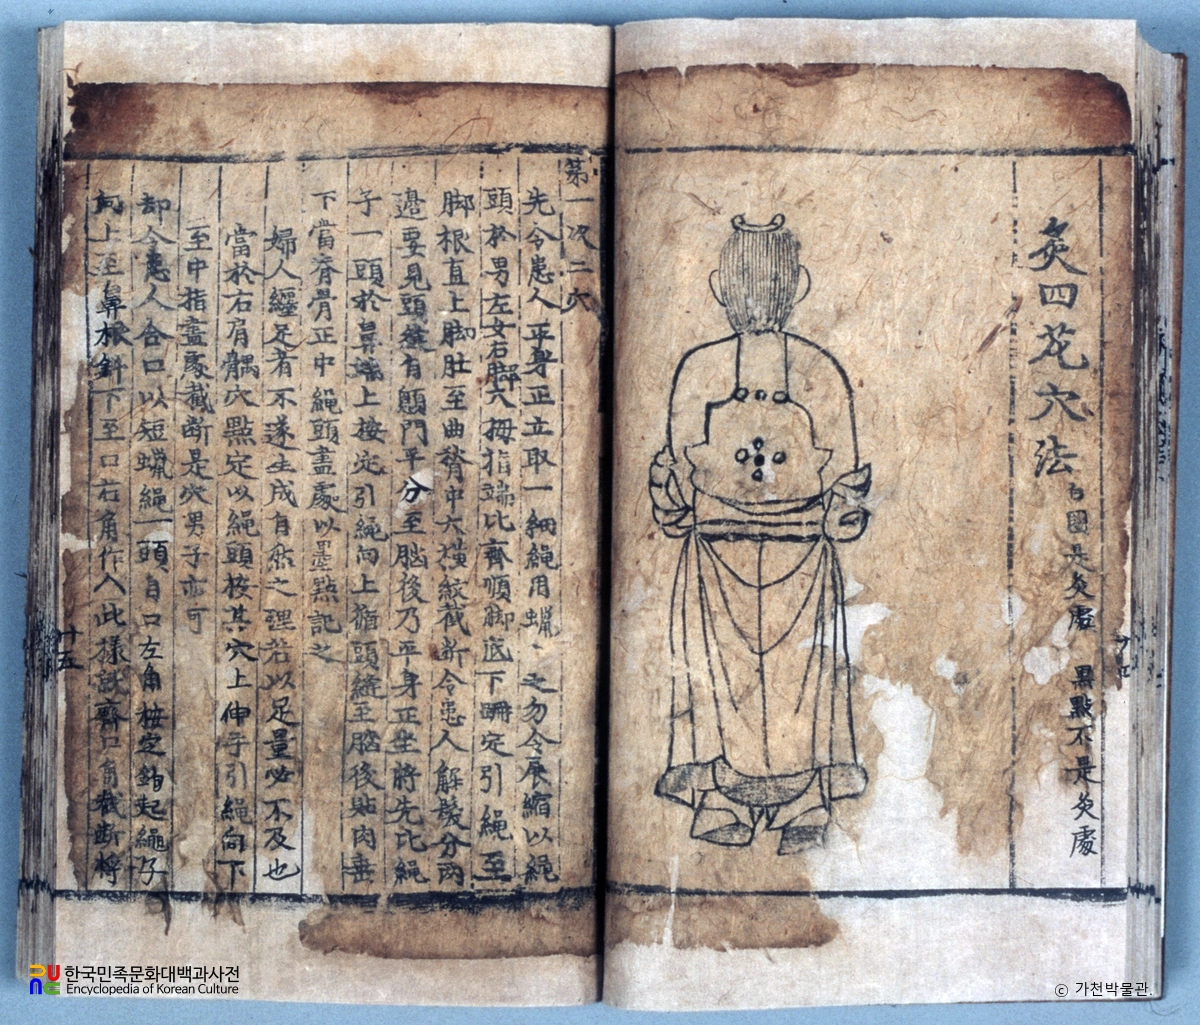 灸四花穴法
白圈是灸處 黒點不是灸處
第一次二穴
先令患人平身正立取一細繩用蝋〻之勿令展縮以繩
頭於男左女右脚大拇指端比齊順脚底下踏定引繩至
脚根直上脚肚至曲䐐中大横紋截断令患人解髮分兩
邊要見頭縫有顖門平分至脳後乃平身正坐將先比繩
子一頭於鼻端上按定引繩向上循頭縫至脳後貼肉垂
下當脊骨正中繩頭盡處以墨點記之
婦人纏足者不遂生成自然之理若以足量必不及也
當於右肩髃穴點定以繩頭按其穴上伸手引繩向下
至中指盡處截断是穴男子亦可
却令患人合口以短蝋繩一頭自口左角按定鈎起繩子
向上至鼻根斜下至口右角作入此様 齊口角截断將
十五
한국민족문화대백과사전
Encyclopedia of Korean Culture
ⓒ 가천박물관.